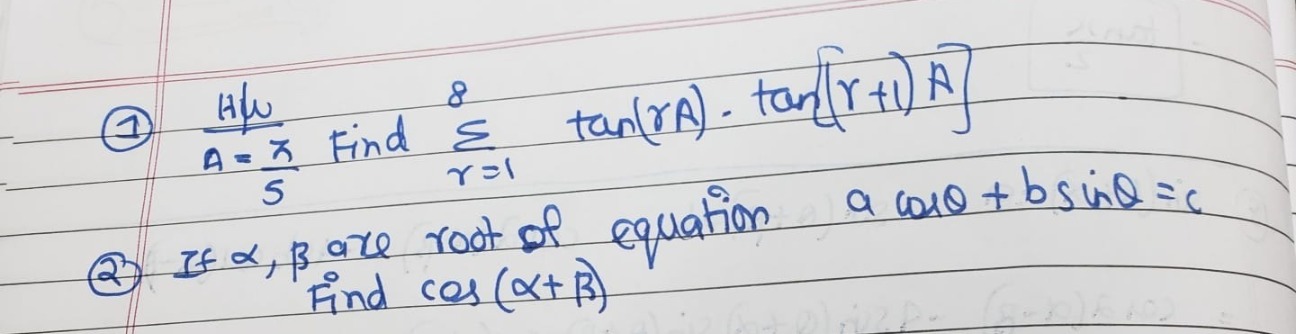 ① H/w
A = π/5 Find 8 Σ r=1 tan(rA) . tan[(r+1) A]
② If α, β are root of equation a cosθ + b sinθ = c
Find cos (α+β)